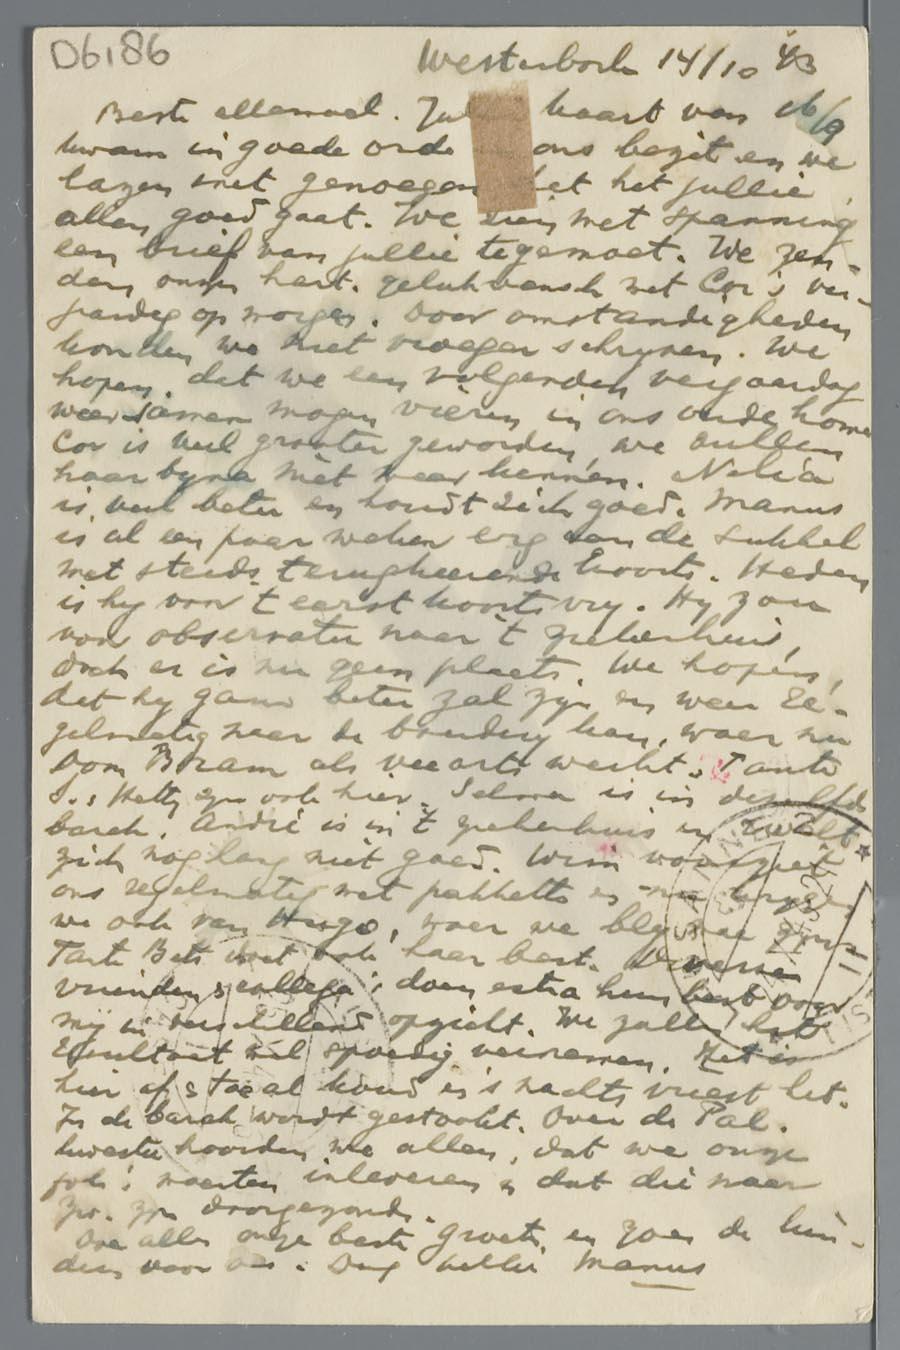 D6186
Westerbork 14/10 43
Beste allemaal. kaart van 16/9
kwam in goede orde ons bezit en we
lazen met genoegen het jullie
allen goed gaat. We zien met spanning
een brief van jullie tegemoet. We zen-
den onzen hart. gelukwensch met Cor's ver-
jaardag op morgen. Door omstandigheden
konden we niet vroeger schryven. We
hopen, dat we een volgenden verjaardag
weer samen mogen vieren in ons oude home
Cor is veel grooter geworden, we zullen
haar byna niet meer kennen. Nelia
is veel beter en houdt zich goed. Manus
is al een paar weken erg aan de sukkel
met steeds terugkeerende koorts. Heden
is hy voor 't eerst koortsvry. Hy zou
voor observatie naar 't ziekenhuis,
doch er is nu geen plaats. We hopen,
dat hy gauw beter zal zyn en weer re-
gelmatig naar de boerdery kan, waar nu
Oom Bram als veearts werkt. Tante
S., Hetty zyn ook hier. Selma is in dezelfde
barak. André is in 't ziekenhuis en
zich nog lang niet goed. Wim voorziet
ons regelmatig met pakketten en nu krygen
we ook van Hugo, waar we bly mee zyn.
Tante Bets doet ook haar best. Diverse
vrienden & collega's doen extra hun best voor
my in verschillend opzicht. We zullen het
resultaat wel spoedig vernemen. Het is
hier af & toe al koud en 's nachts vriest het.
In de barak wordt gestookt. Over de Pal.
kwestie hoorden we alleen, dat we onze
foto's moesten inleveren & dat die naar
zyn doorgezonden.
allen onze beste groeten en zoen de kin-
deren voor ons. Dag Manus